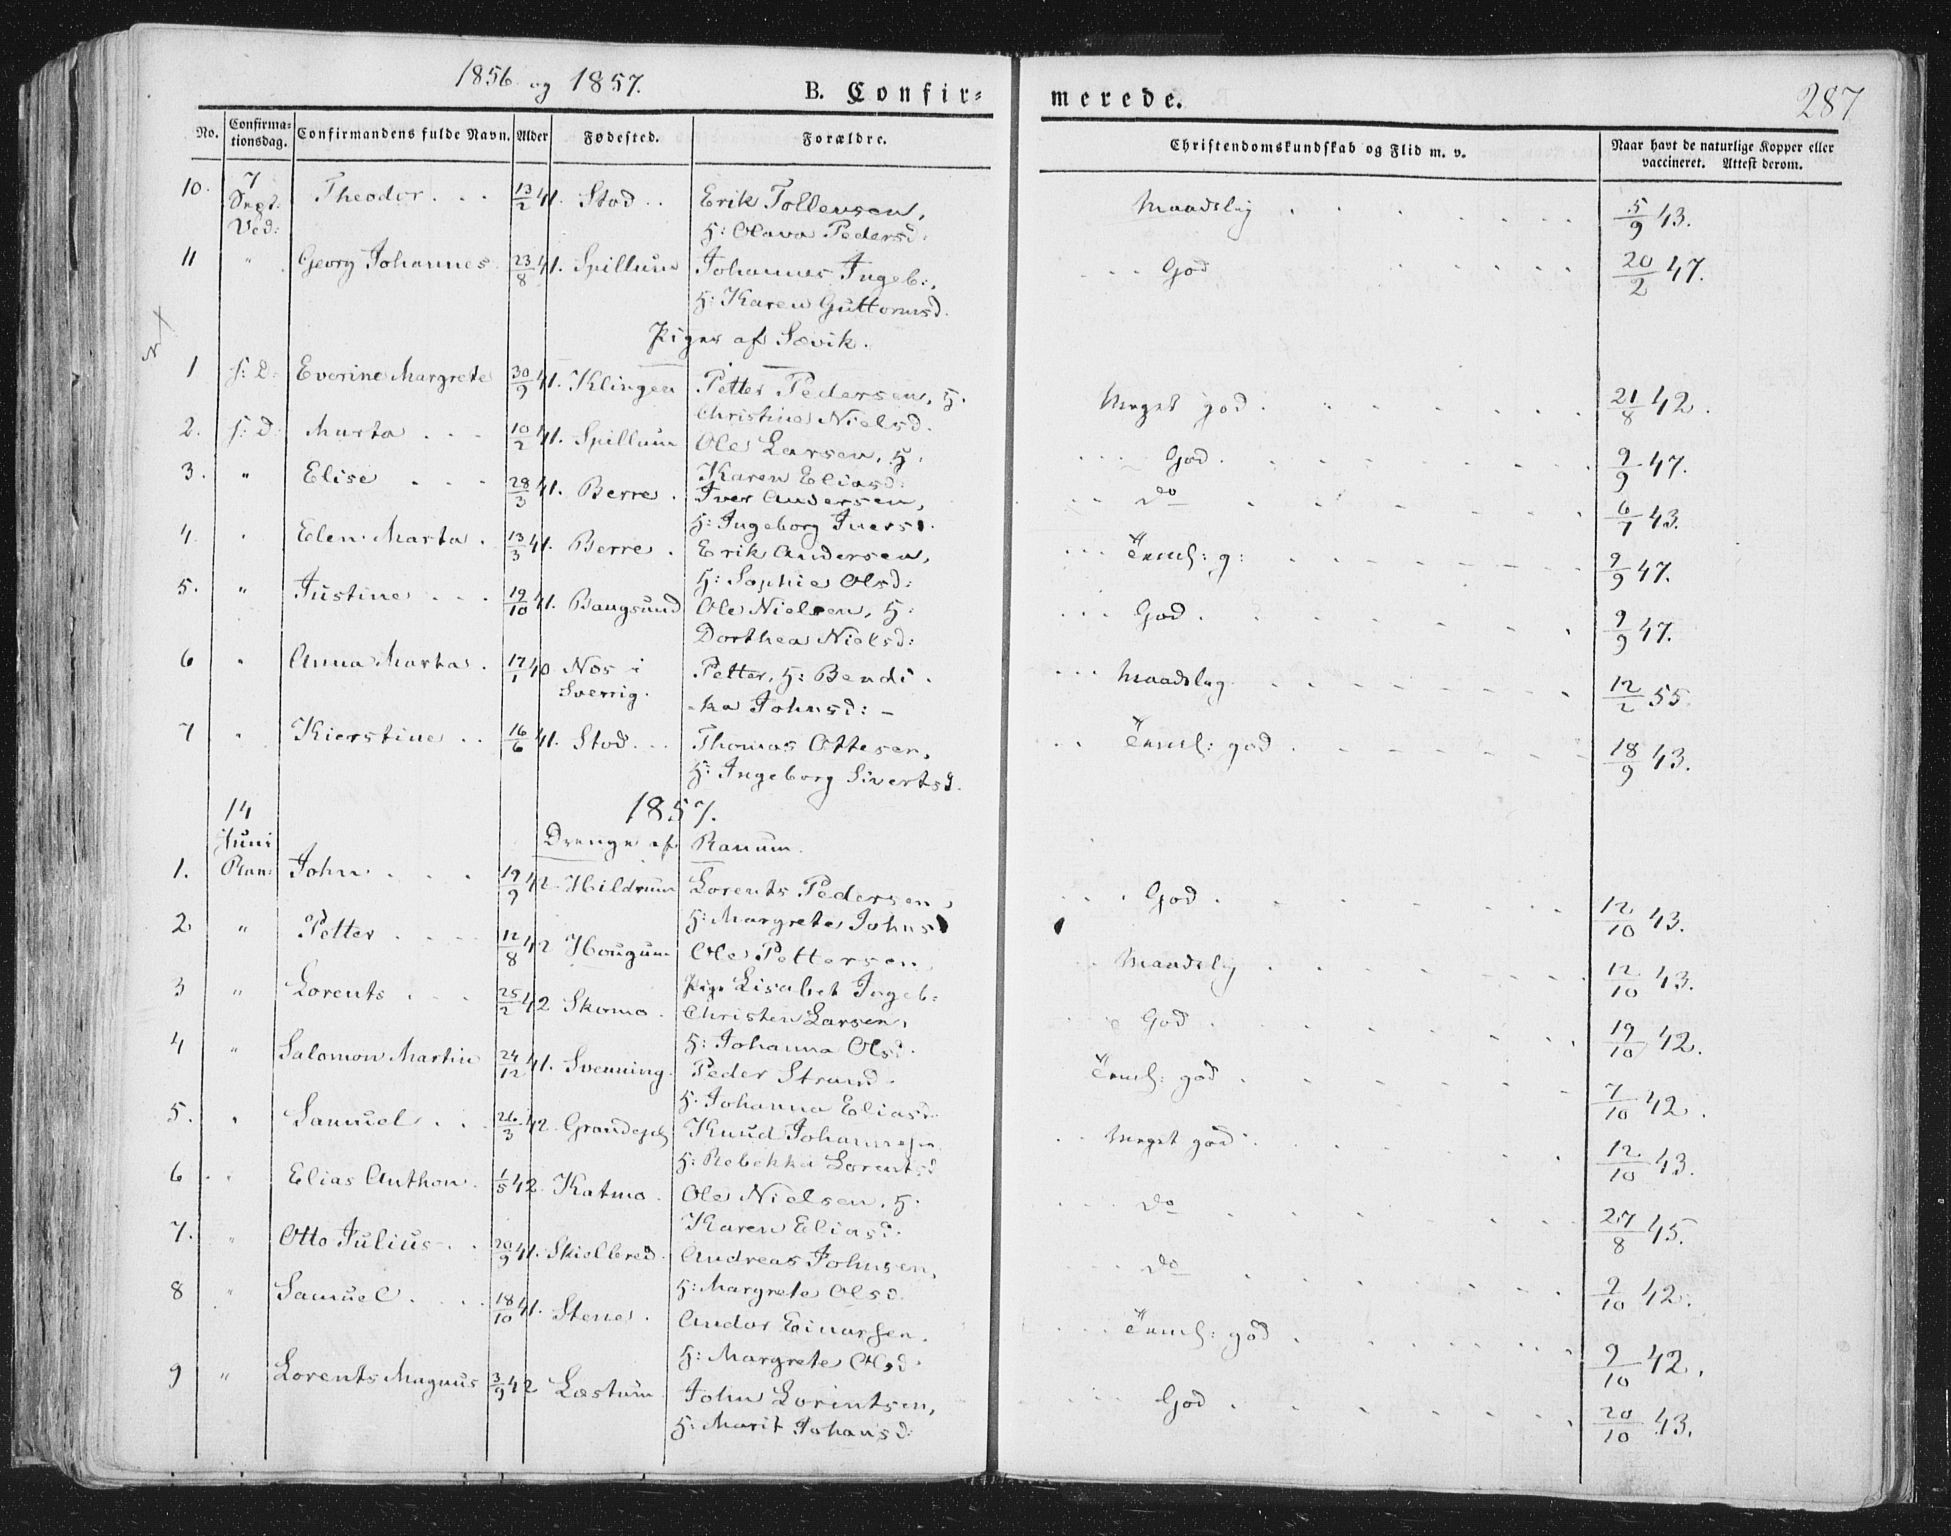 1856 og 1857. B. Confir= merede. 287
No. Confirma=tionsdag. Confirmandens fulde Navn. Alder Fødested. Forældre. Christendomskundskab og Flid m. v. Naar havt de naturlige Kopper eller vaccineret. Attest derom.
10. 7 Sept. Ved: Theodor . . . 13/2 41. Stod . . Erik Tollevsen, Maadelig 5/9 43.
H: Olava Pedersd:
11 " Georg Johannes 23/8 41. Spillum Johannes Ingeb:, God 20/2 47.
H: Karen Guttormsd.
Piger af Sævik.
1 s: D: Everine Margrete 30/9 41. Klingen Petter Pedersen, H. Meget god 21/8 42.
Christine Nielsd.
2. s: D: Marta . . . 10/2 41. Spillum Ole Larsen, H. God 9/9 47.
Karen Eliasd:
3. " Elise . . . 28/3 41. Berre . Iver Andersen, do 6/7 43.
H: Ingeborg Iversd.
4. " Elen Marta . 13/3 41. Berre . Erik Andersen, Teml: g: 9/9 47.
H: Sophie Olsd:
5. " Justine . . . 19/10 41. Bangsund Ole Nielsen, H: God 9/9 47.
Dorthea Nielsd:
6 " Anna Marta . 17/1 40 Nos i Sverrig. Petter, H: Bendi- Maadelig 12/2 55.
-ka Johnsd: –
7 " Kierstine . . 16/6 41. Stod . . . Thomas Ottesen, Teml: god 18/9 43.
H: Ingeborg Sivertsd.
1857.
14 Juni Drenge af Ranum.
1. Ran: John . . . . 19/9 42. Hildrum Lorents Pedersen, God 12/10 43.
H: Margrete Johnsd
2 " Petter . . . . 12/8 42 Hougum Ole Pettersen, Maadelig 12/10 43.
Pige Lisabet Ingeb:
3 " Lorents . . . 25/2 42 Skomo . Christen Larsen, God 19/10 42.
H: Johanna Olsd.
4 " Salomon Martin 24/12 41. Svenning. Peder Strand. Teml: god 7/10 42.
H: Johanna Eliasd.
5. " Samuel . . . 26/3 42. Knud Johannesen Meget god 12/10 43.
H: Rebekka Lorentsd
6 " Elias Anthon . 1/5 42. Katmo . Ole Nielsen, H. do 27/8 45.
Karen Eliasd.
7. " Otto Julius . . 20/9 41. Skielbred. Andreas Johnsen, do 9/10 42.
H: Margrete Olsd.
8 " Samuel . . . . 18/10 41. Stene . Andor Einarsen. Teml: god 9/10 42.
H: Margrete Olsd.
9 " Lorents Magnus 3/9 42 Læstum John Lorintsen, God 20/10 43.
H: Marit Johansd: